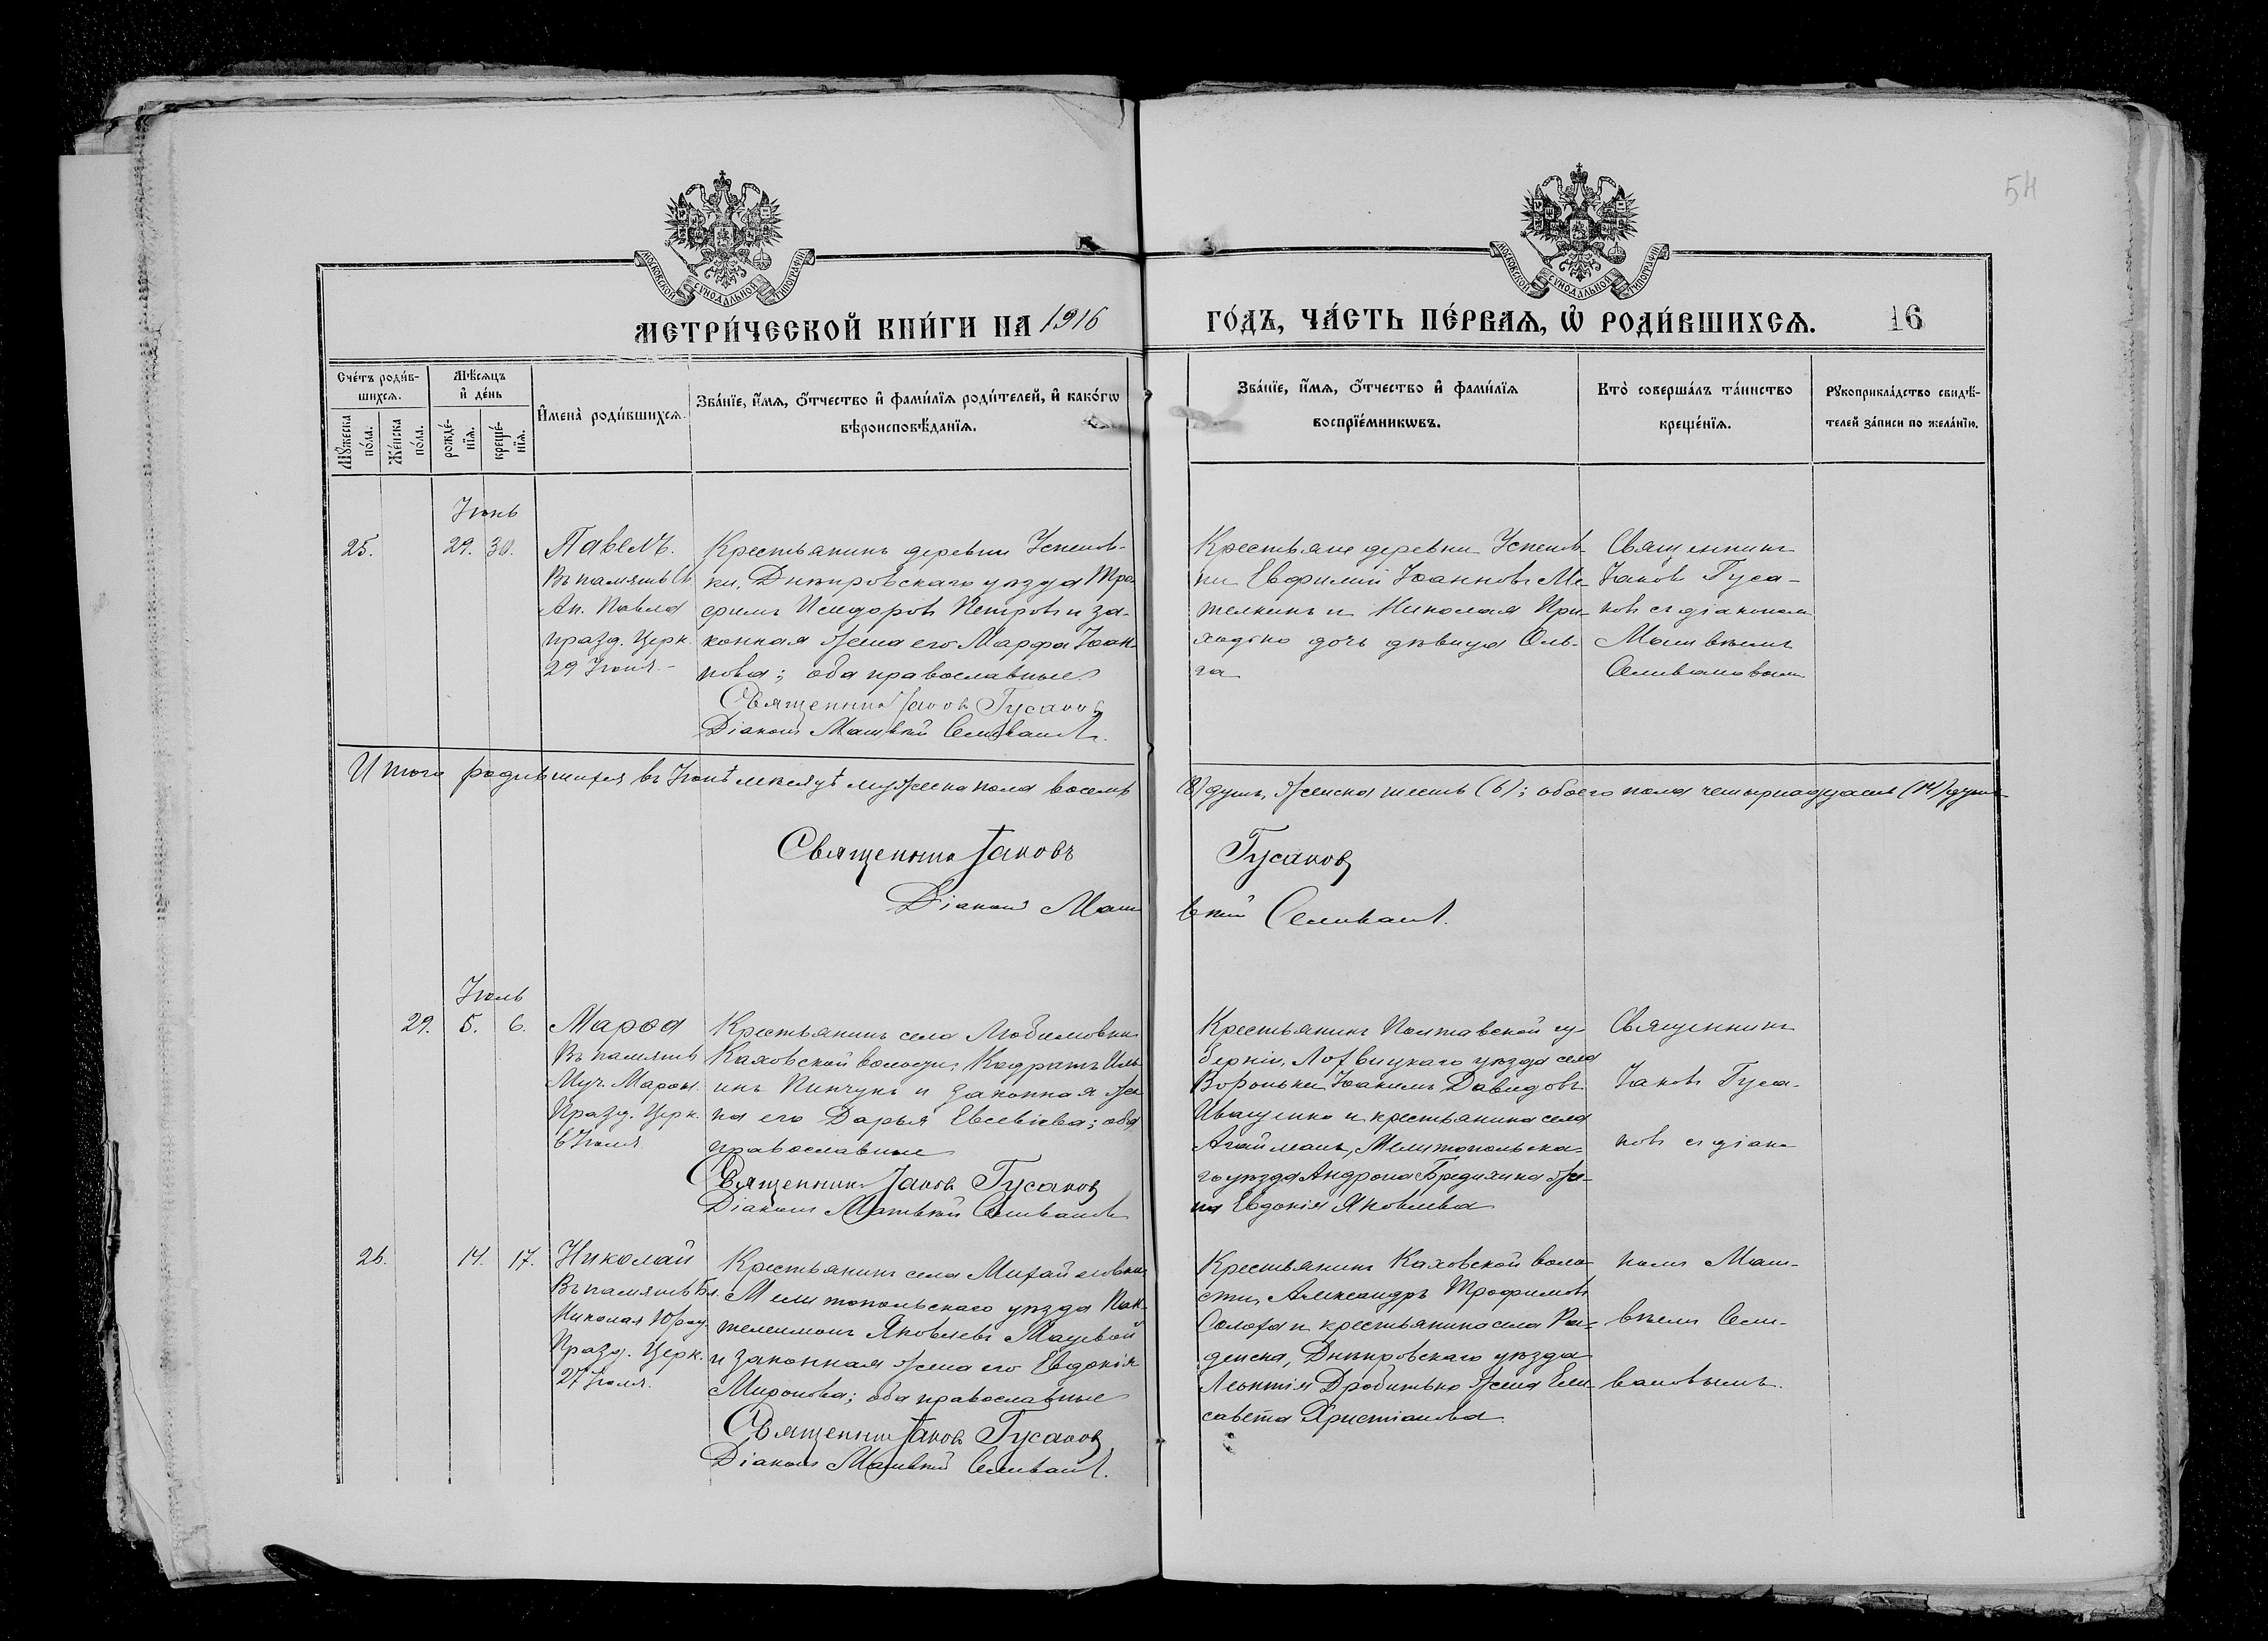 54
МОСКОВСКОЙ СУНОДАЛЬНОЙ ТИПОГРАФІИ
МОСКОВСКОЙ СУНОДАЛЬНОЙ ТИПОГРАФІИ
МЕТРИ́ЧЕСКОЙ КНИ́ГИ НА 1916
ГО́ДЪ, ЧА́СТЬ ПЕ́РВАѦ, Ѽ РОДИ́ВШИХСѦ. 16
Сче́тъ роди́в-
шихсѧ.
Мѣ́сѧцъ
и҆ де́нь
Мꙋ́жеска
по́ла.
Же́нска
по́ла.
рожде́-
нїѧ.
креще́-
нїѧ.
И҆мена̀ роди́вшихсѧ.
Зва́нїе, и҆́мѧ, ѻ҆́тчество и҆ фами́лїѧ роди́телей, и҆ како́гѡ
вѣроисповѣ́данїѧ.
Зва́нїе, и҆́мѧ, ѻ҆́тчество и҆ фами́лїѧ
воспрїе́мникѡвъ.
Кто̀ соверша́лъ та́инство
креще́нїѧ.
Рꙋкоприкла́дство свидѣ́-
телей за́писи по жела́нїю.
Іюнь
25. 29. 30.
Павелъ.
Въ память Св.
Ап. Павла
празд. Церк.
29 Іюня.-
Крестьянинъ деревни Успенов-
ки, Днѣпровскаго уѣзда Тро-
фимъ Исидоровъ Петровъ и за-
конная жена его Марфа Іоан-
нова; оба православные
Священникъ Іаковъ Гусаковъ
Діаконъ Матвѣй Селивановъ.
Крестьяне деревни Успенов-
ки Евфимій Іоанновъ Ме-
телкинъ и Николая При-
ходько дочь дѣвица Оль-
га
Священникъ
Іаковъ Гуса-
ковъ съ діакономъ
Матвѣемъ
Селивановымъ
Итого родившихся въ Іюнѣ мѣсяцѣ мужеска пола восемь
(8) душъ, женска шесть (6); обоего пола четырнадцать (14) душъ
Священникъ Іаковъ Гусаковъ
Діаконъ Матвѣй Селивановъ.
Іюль
29. 5. 6.
Марѳа
Въ память
Муч. Марѳы.
Празд. Церк.
6 Іюля
Крестьянинъ села Любимовки
Каховской волости, Кодратъ Иль-
инъ Пинчукъ и законная же-
на его Дарья Евсевіева; оба
православные
Священникъ Іаковъ Гусаковъ
Діаконъ Матвѣй Селивановъ
Крестьянинъ Полтавской гу-
берніи, Лохвицкаго уѣзда села
Вороньки Іоакимъ Давидовъ
Иващенко и крестьянина села
Агайманъ, Мелитопольска-
го уѣзда Андрона Бредихина же-
на Евдокія Яковлева
Священникъ
Іаковъ Гуса-
ковъ съ діако-
26. 14. 17.
Николай
Въ память Бл.
Николая Юрод.
Празд. Церк.
27 Іюля.
Крестьянинъ села Михайловки
Мелитопольскаго уѣзда Пан-
телеимонъ Яковлевъ Мацевой
и законная жена его Евдокія
Миронова; оба православные
Священникъ Іаковъ Гусаковъ
Діаконъ Матвѣй Селивановъ.
Крестьянинъ Каховской воло-
сти, Александръ Трофимовъ
Солоха и крестьянина села
Днѣпровскаго уѣзда
Леонтія Дробитько жена Ели-
савета Христіанова
номъ Мат-
вѣемъ Сели-
вановымъ.